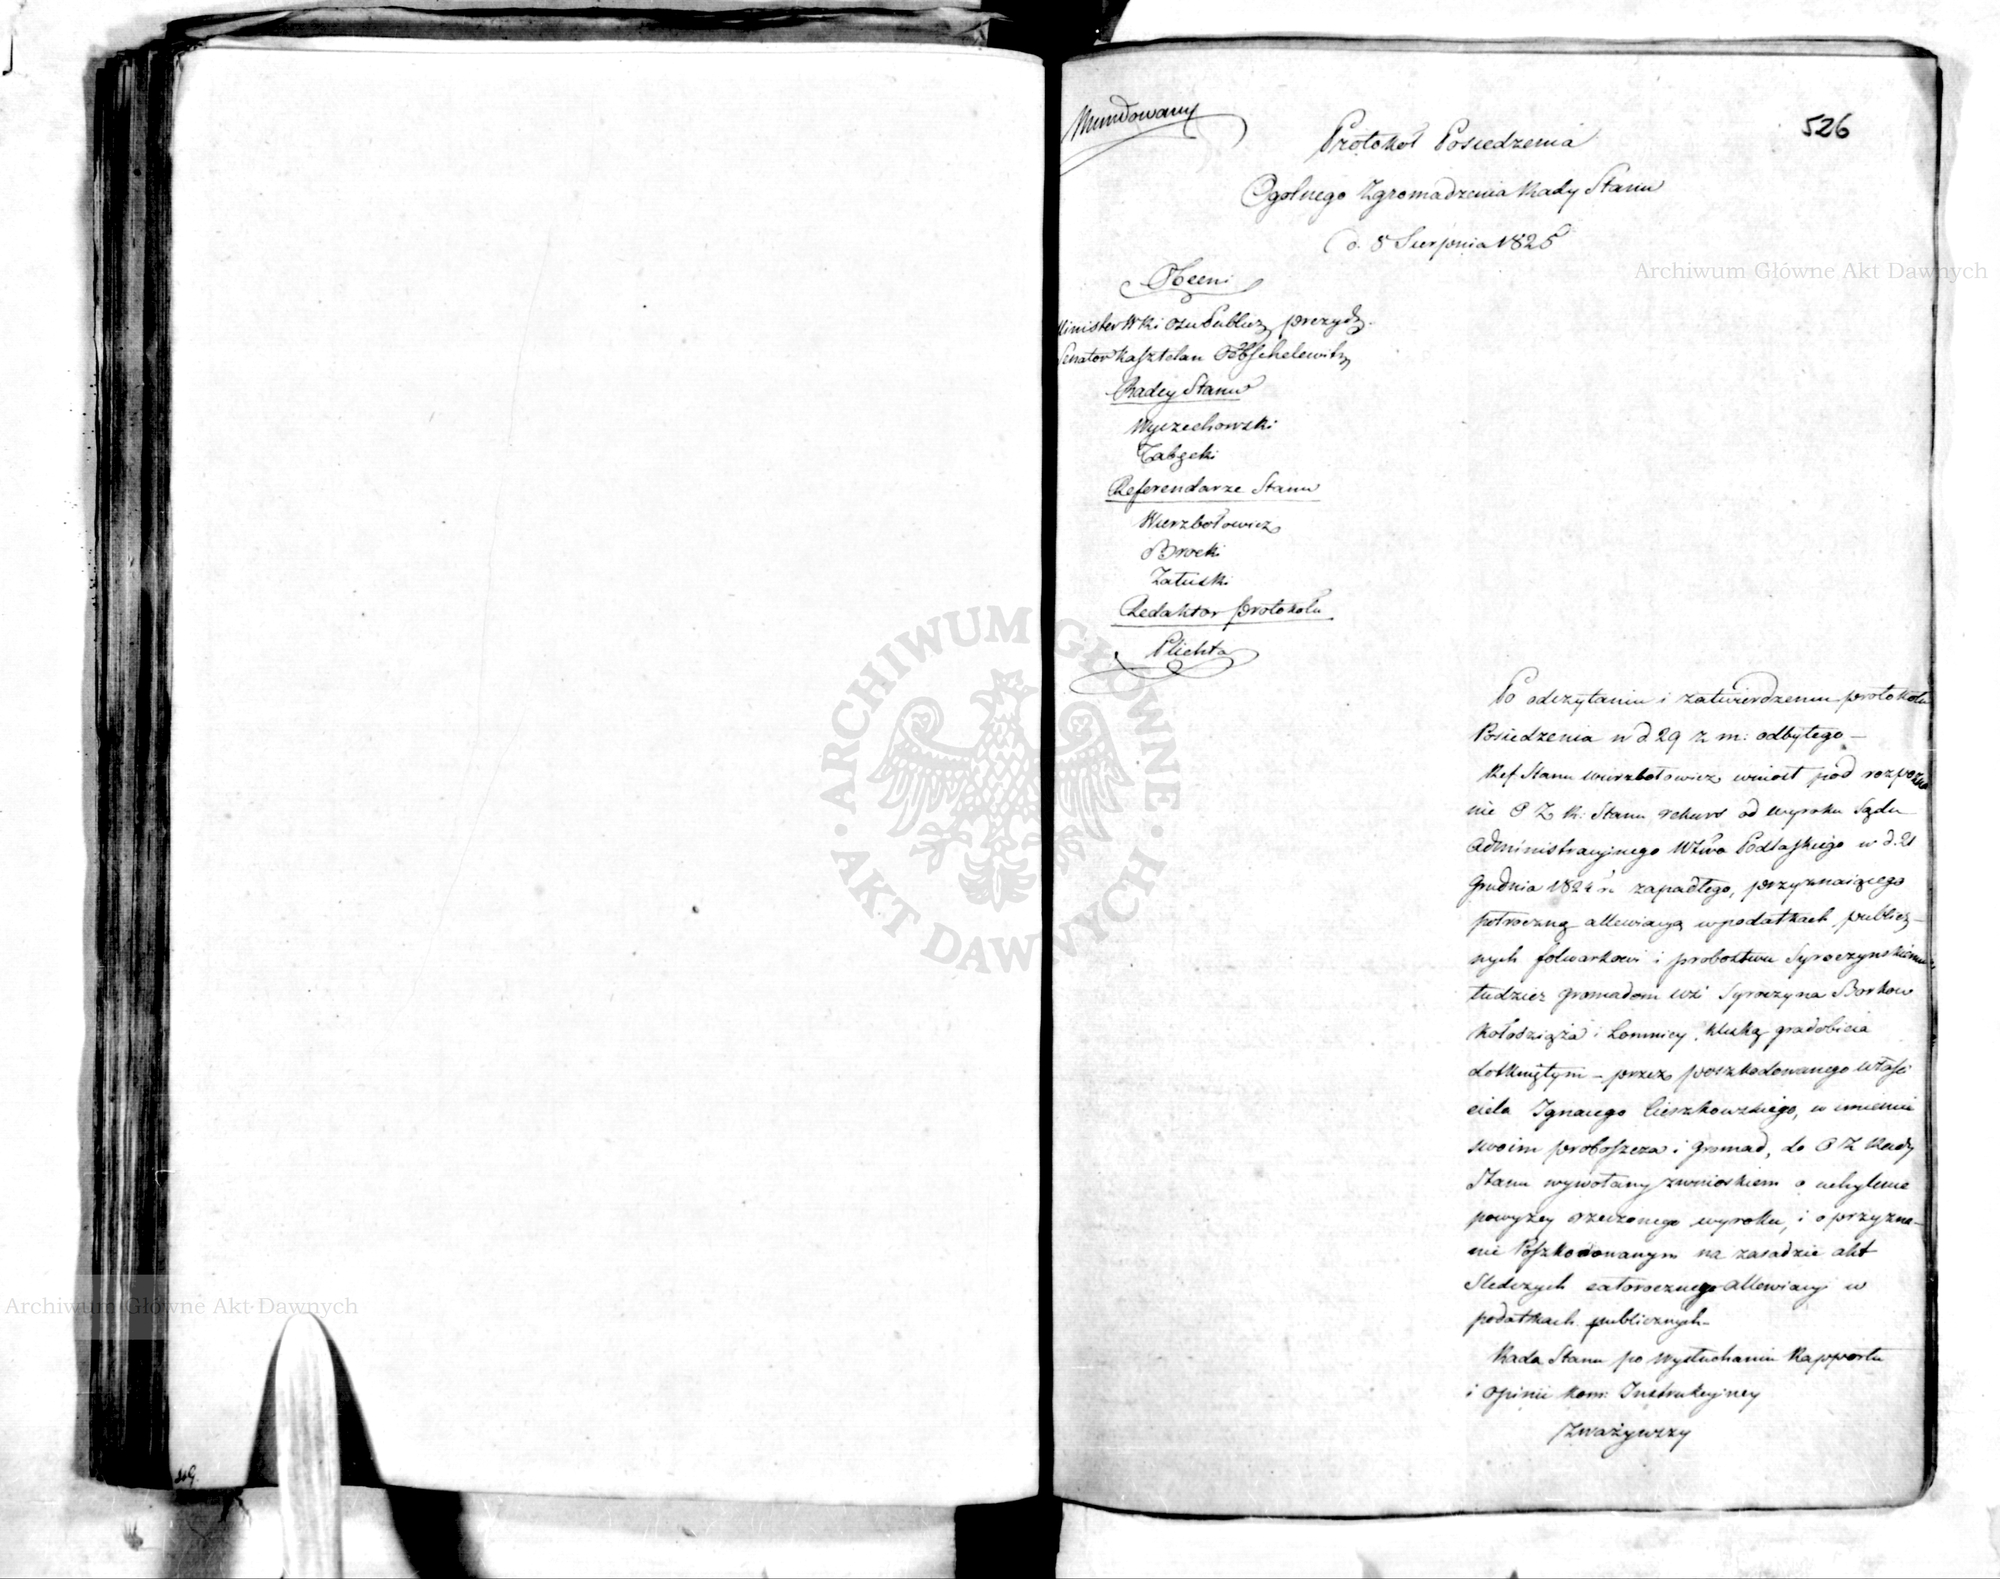 Mundowany
526
Protokoł Posiedzenia
Ogolnego Zgromadzenia Rady Stanu
d. 5 Sierpnia 1825
Obecni
Minister Prezyd.
Senator Kasztelan
Radcy Stanu
Wyczechowski
Referendarze Stanu
Wierzbołowicz
Brocki
Załuski
Redaktor protokołu
Plichta
Po odczytaniu i zatwierdzeniu protokołu
Posiedzenia w d 29 z m: odbytego –
Ref Stanu Wierzbołowicz wniosł pod rozpozna
nie O Z R: Stanu rekurs od wyroku Sądu
Administracyjnego Wztwa Podlaskiego w d. 21
Grudnia 1824 r. zapadłego, przyznaiącego
połroczną allewiacyą w podatkach publicz–
nych folwarkowi i probostwu Syroczynskiemu
tudzież gromadom wsi Syroczyna Borkow
Kołodziąża i Łomnicy, klęską gradobicia
dotkniętym – przez poszkodowanego właści
ciela Ignacego Cieszkowskiego, w imieniu
swoim proboszcza i gromad, do O Z Rady
Stanu wywołany z wnioskiem o uchylenie
powyżey rzeczonego wyroku, i o przyzna–
nie Poszkodowanym na zasadzie akt
Sledczych całoroczney allewiacyi w
podatkach publicznych –
Rada Stanu po wysłuchaniu Rapportu
i opinii Kom: Instrukcyjney
Zważywszy
219.
Archiwum Główne Akt Dawnych
ARCHIWUM GŁÓWNE · AKT DAWNYCH ·
Archiwum Główne Akt Dawnych